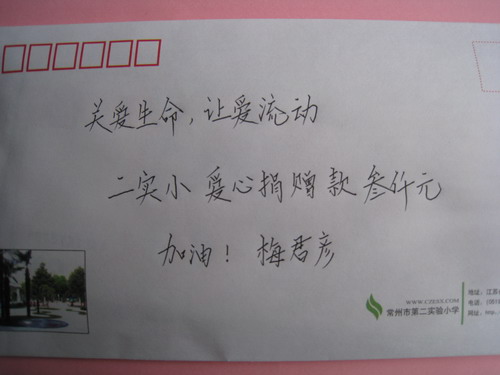 关爱生命，让爱流动
二实小 爱心捐赠款 叁仟元
加油！ 梅君彦
常州市第二实验小学
地址：江苏
电话：
网址：